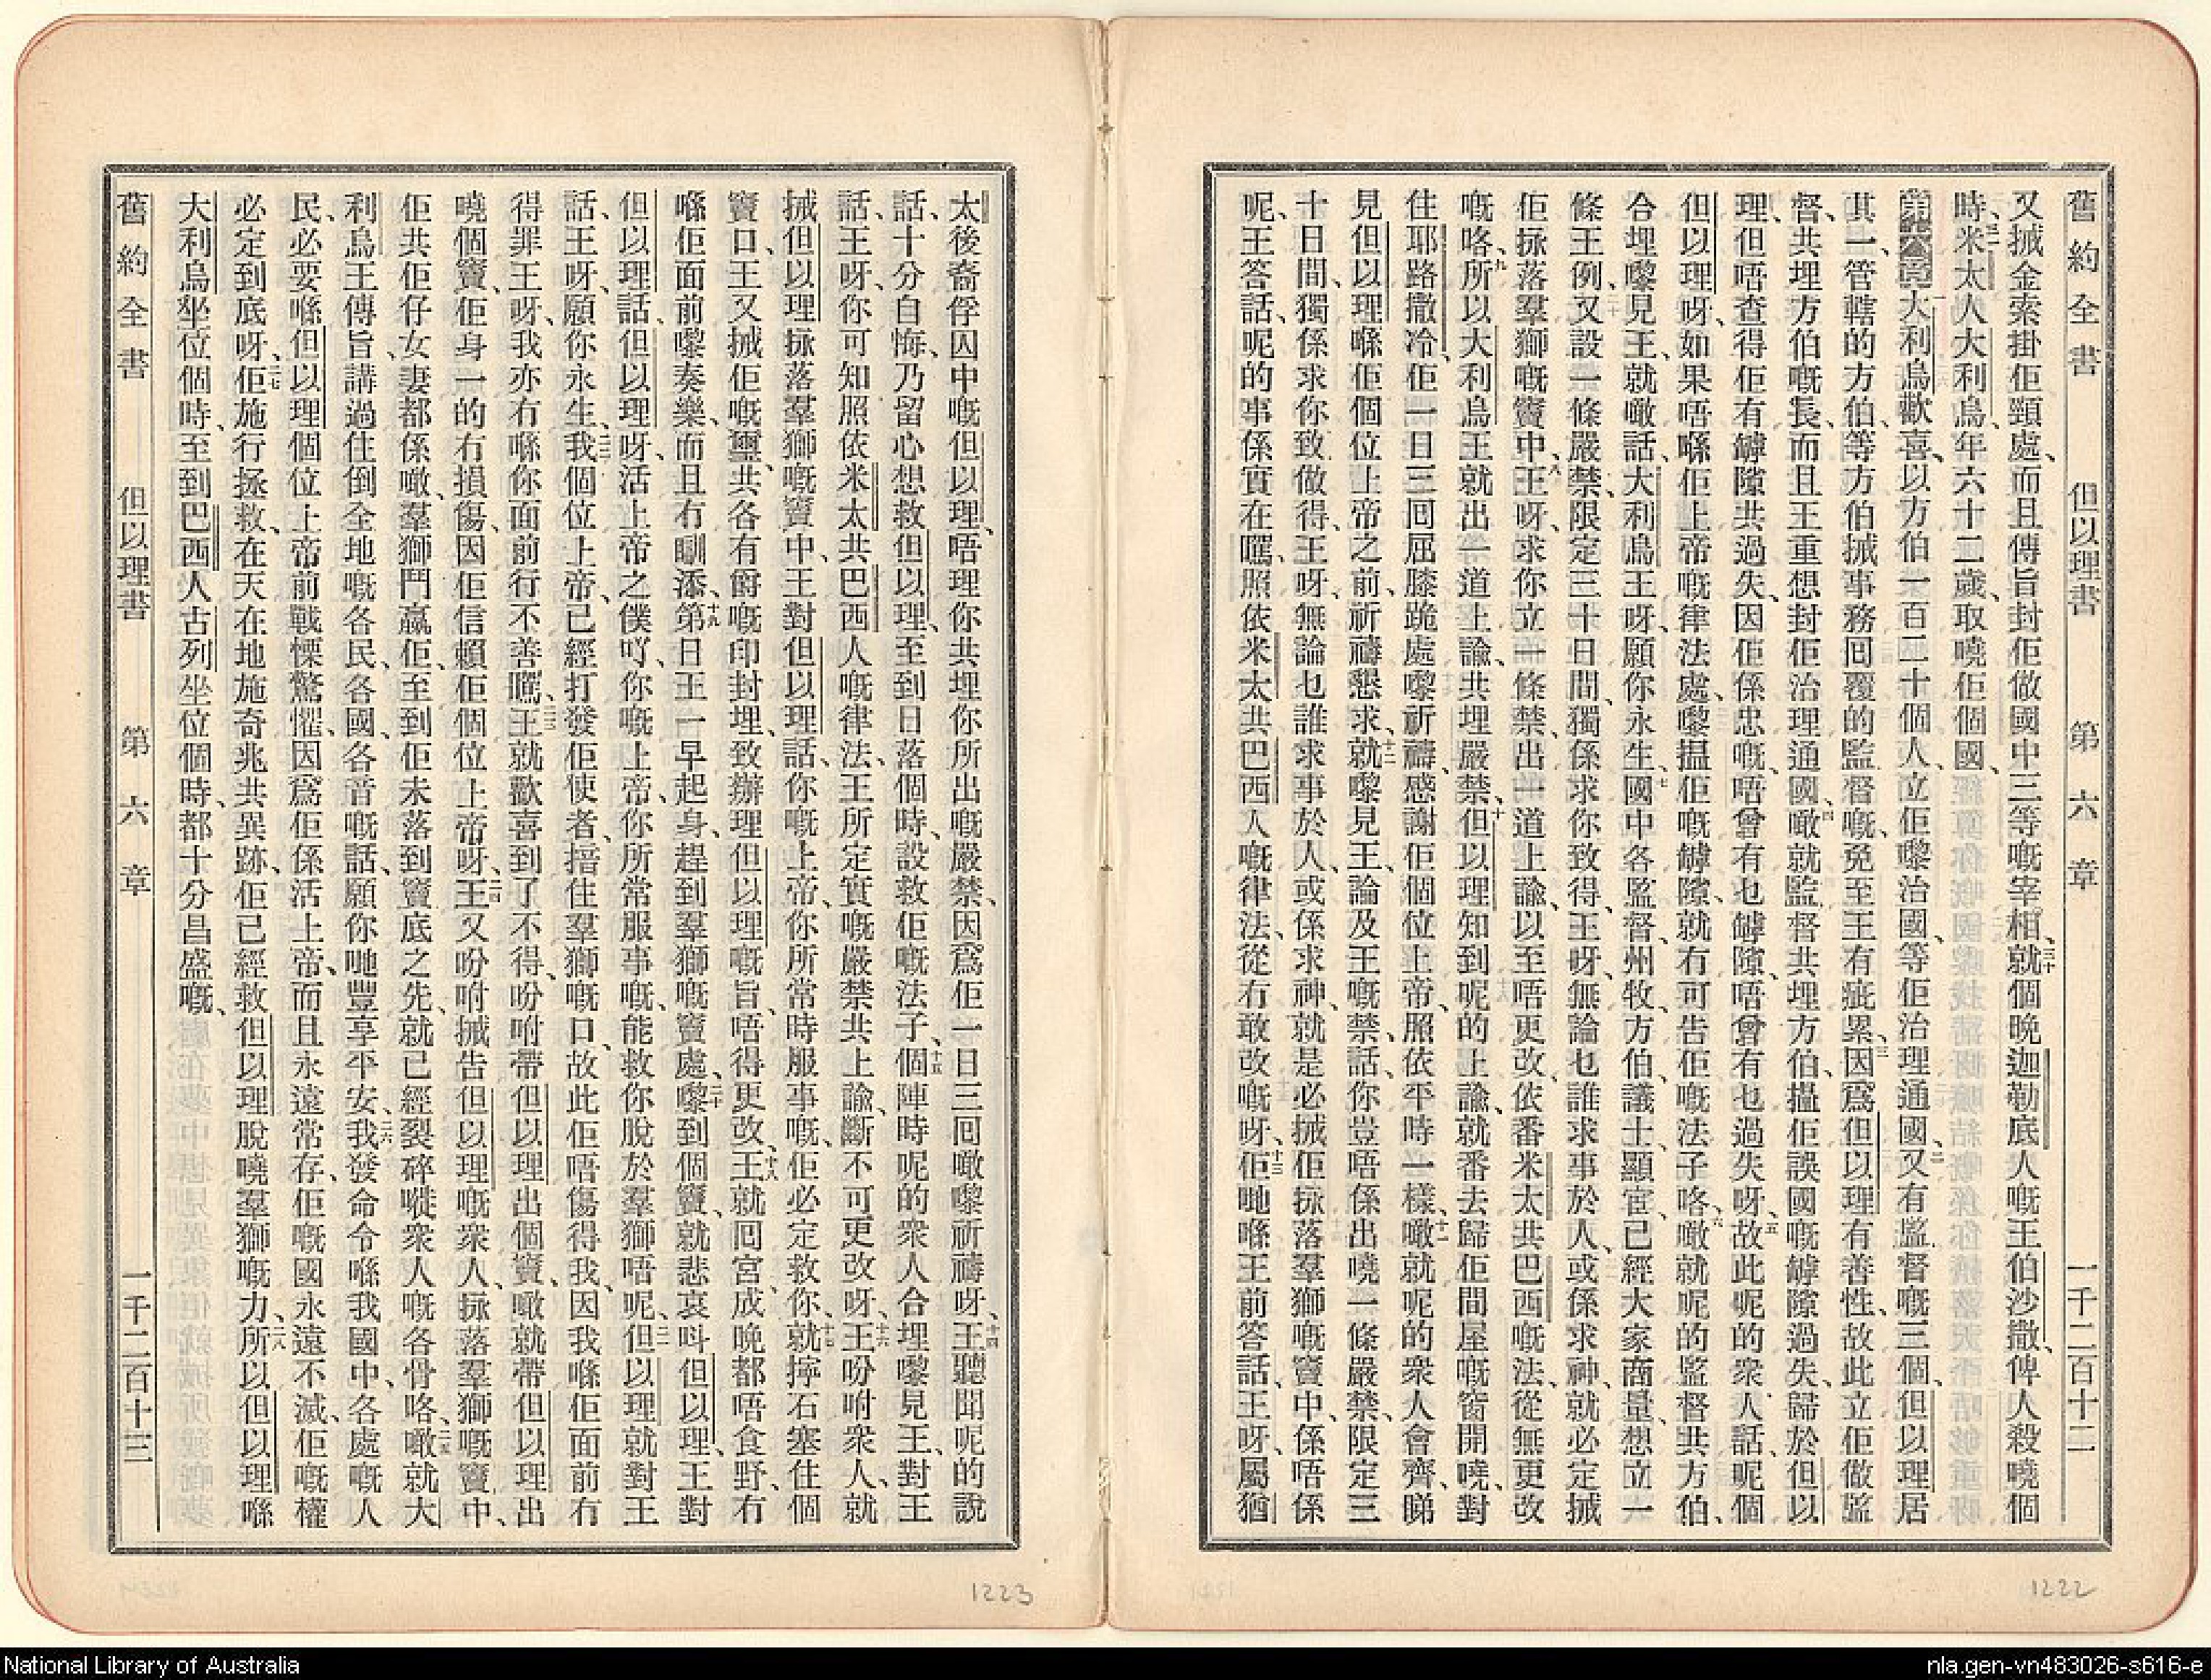 舊約全書 但以理書 第六章 一千二百十二
又搣金索掛佢頸處、而且傳旨封佢做國中三等嘅宰相、三十就個晚迦勒底人嘅王伯沙撒、俾人殺嘵個
時、三一米太人大利烏、年六十二歲、取嘵佢個國、
第六章 一大利烏歡喜以方伯一百二十個人、立佢嚟治國、等佢治理通國、二又有監督嘅三個、但以理居
其一、管轄的方伯、等方伯搣事務回覆的監督嘅、免至王有疵累、三因爲但以理有善性、故此立佢做監
督、共埋方伯嘅長、而且王重想封佢治理通國、四噉就監督共埋方伯、搵佢誤國嘅罅隙過失、歸於但以
理、但唔查得佢有罅隙共過失、因佢係忠嘅、唔曾有乜罅隙、唔曾有乜過失呀、五故此呢的衆人話、呢個
但以理呀、如果唔喺佢上帝嘅律法處、嚟搵佢嘅罅隙、就冇可告佢嘅法子咯、六噉就呢的監督共方伯、
合埋嚟見王、就噉話、大利烏王呀、願你永生、七國中各監督、州牧、方伯、議士、顯宦、已經大家商量、想立一
條王例、又設一條嚴禁、限定三十日間、獨係求你致得、王呀、無論乜誰求事於人、或係求神、就必定搣
佢掹落羣獅嘅竇中、八王呀、求你立一條禁、出一道上諭、以至唔更改、依番米太共巴西嘅法、從無更改
嘅咯、九所以大利烏王就出一道上諭、共埋嚴禁、十但以理知到呢的上諭、就番去歸佢間屋嘅窗開嘵、對
往耶路撒冷、佢一日三回屈膝跪處嚟祈禱、感謝佢個位上帝、照依平時一樣、十一噉就呢的衆人會齊、睇
見但以理喺佢個位上帝之前、祈禱懇求、十二就嚟見王、論及王嘅禁、話、你豈唔係出嘵一條嚴禁、限定三
十日間、獨係求你致做得、王呀、無論乜誰求事於人、或係求神、就是必搣佢掹落羣獅嘅竇中、係唔係
呢、王答話、呢的事係實在嘅、照依米太共巴西人嘅律法、從冇敢改嘅呀、十三佢哋喺王前答話、王呀、屬猶
1222
舊約全書 但以理書 第六章 一千二百十三
太後裔俘囚中嘅但以理、唔理你共埋你所出嘅嚴禁、因爲佢一日三回噉嚟祈禱呀、十四王聽聞呢的說
話、十分自悔、乃留心想救但以理、至到日落個時、設救佢嘅法子、十五個陣時呢的衆人合埋嚟見王、對王
話、王呀、你可知照依米太共巴西人嘅律法、王所定實嘅嚴禁共上諭、斷不可更改呀、十六王吩咐衆人、就
搣但以理掹落羣獅嘅竇中、王對但以理話、你嘅上帝、你所常時服事嘅、佢必定救你、十七就擰石塞住個
竇口、王又搣佢嘅璽、共各有爵嘅印封埋、致辦理但以理嘅旨、唔得更改、十八王就回宮、成晚都唔食野、冇
喺佢面前嚟奏樂、而且冇瞓添、十九第日王一早起身、趕到羣獅嘅竇處、二十嚟到個竇、就悲哀呌但以理、王對
但以理話、但以理呀、活上帝之僕吖、你嘅上帝、你所常服事嘅、能救你脫於羣獅唔呢、二一但以理就對王
話、王呀、願你永生、二二我個位上帝、已經打發佢使者、揞住羣獅嘅口、故此佢唔傷得我、因我喺佢面前冇
得罪王呀、我亦冇喺你面前行不善嘅、二三王就歡喜到了不得、吩咐帶但以理出個竇、噉就帶但以理出
嘵個竇、佢身一的冇損傷、因佢信賴佢個位上帝呀、二四王又吩咐搣告但以理嘅衆人、掹落羣獅嘅竇中、
佢共佢仔女妻都係噉、羣獅鬥贏佢、至到佢未落到竇底之先、就已經裂碎嗰衆人嘅各骨咯、二五噉就大
利烏王傳旨、講過住倒全地嘅各民、各國、各音嘅話、願你哋豐享平安、二六我發命令喺我國中、各處嘅人
民、必要喺但以理個位上帝前戰慄驚懼、因爲佢係活上帝、而且永遠常存、佢嘅國永遠不滅、佢嘅權
必定到底呀、二七佢施行拯救、在天在地施奇兆共異跡、佢已經救但以理脫嘵羣獅嘅力、二八所以但以理喺
大利烏坐位個時、至到巴西人古列坐位個時、都十分昌盛嘅、
1223
National Library of Australia
nla.gen-vn483026-s616-e